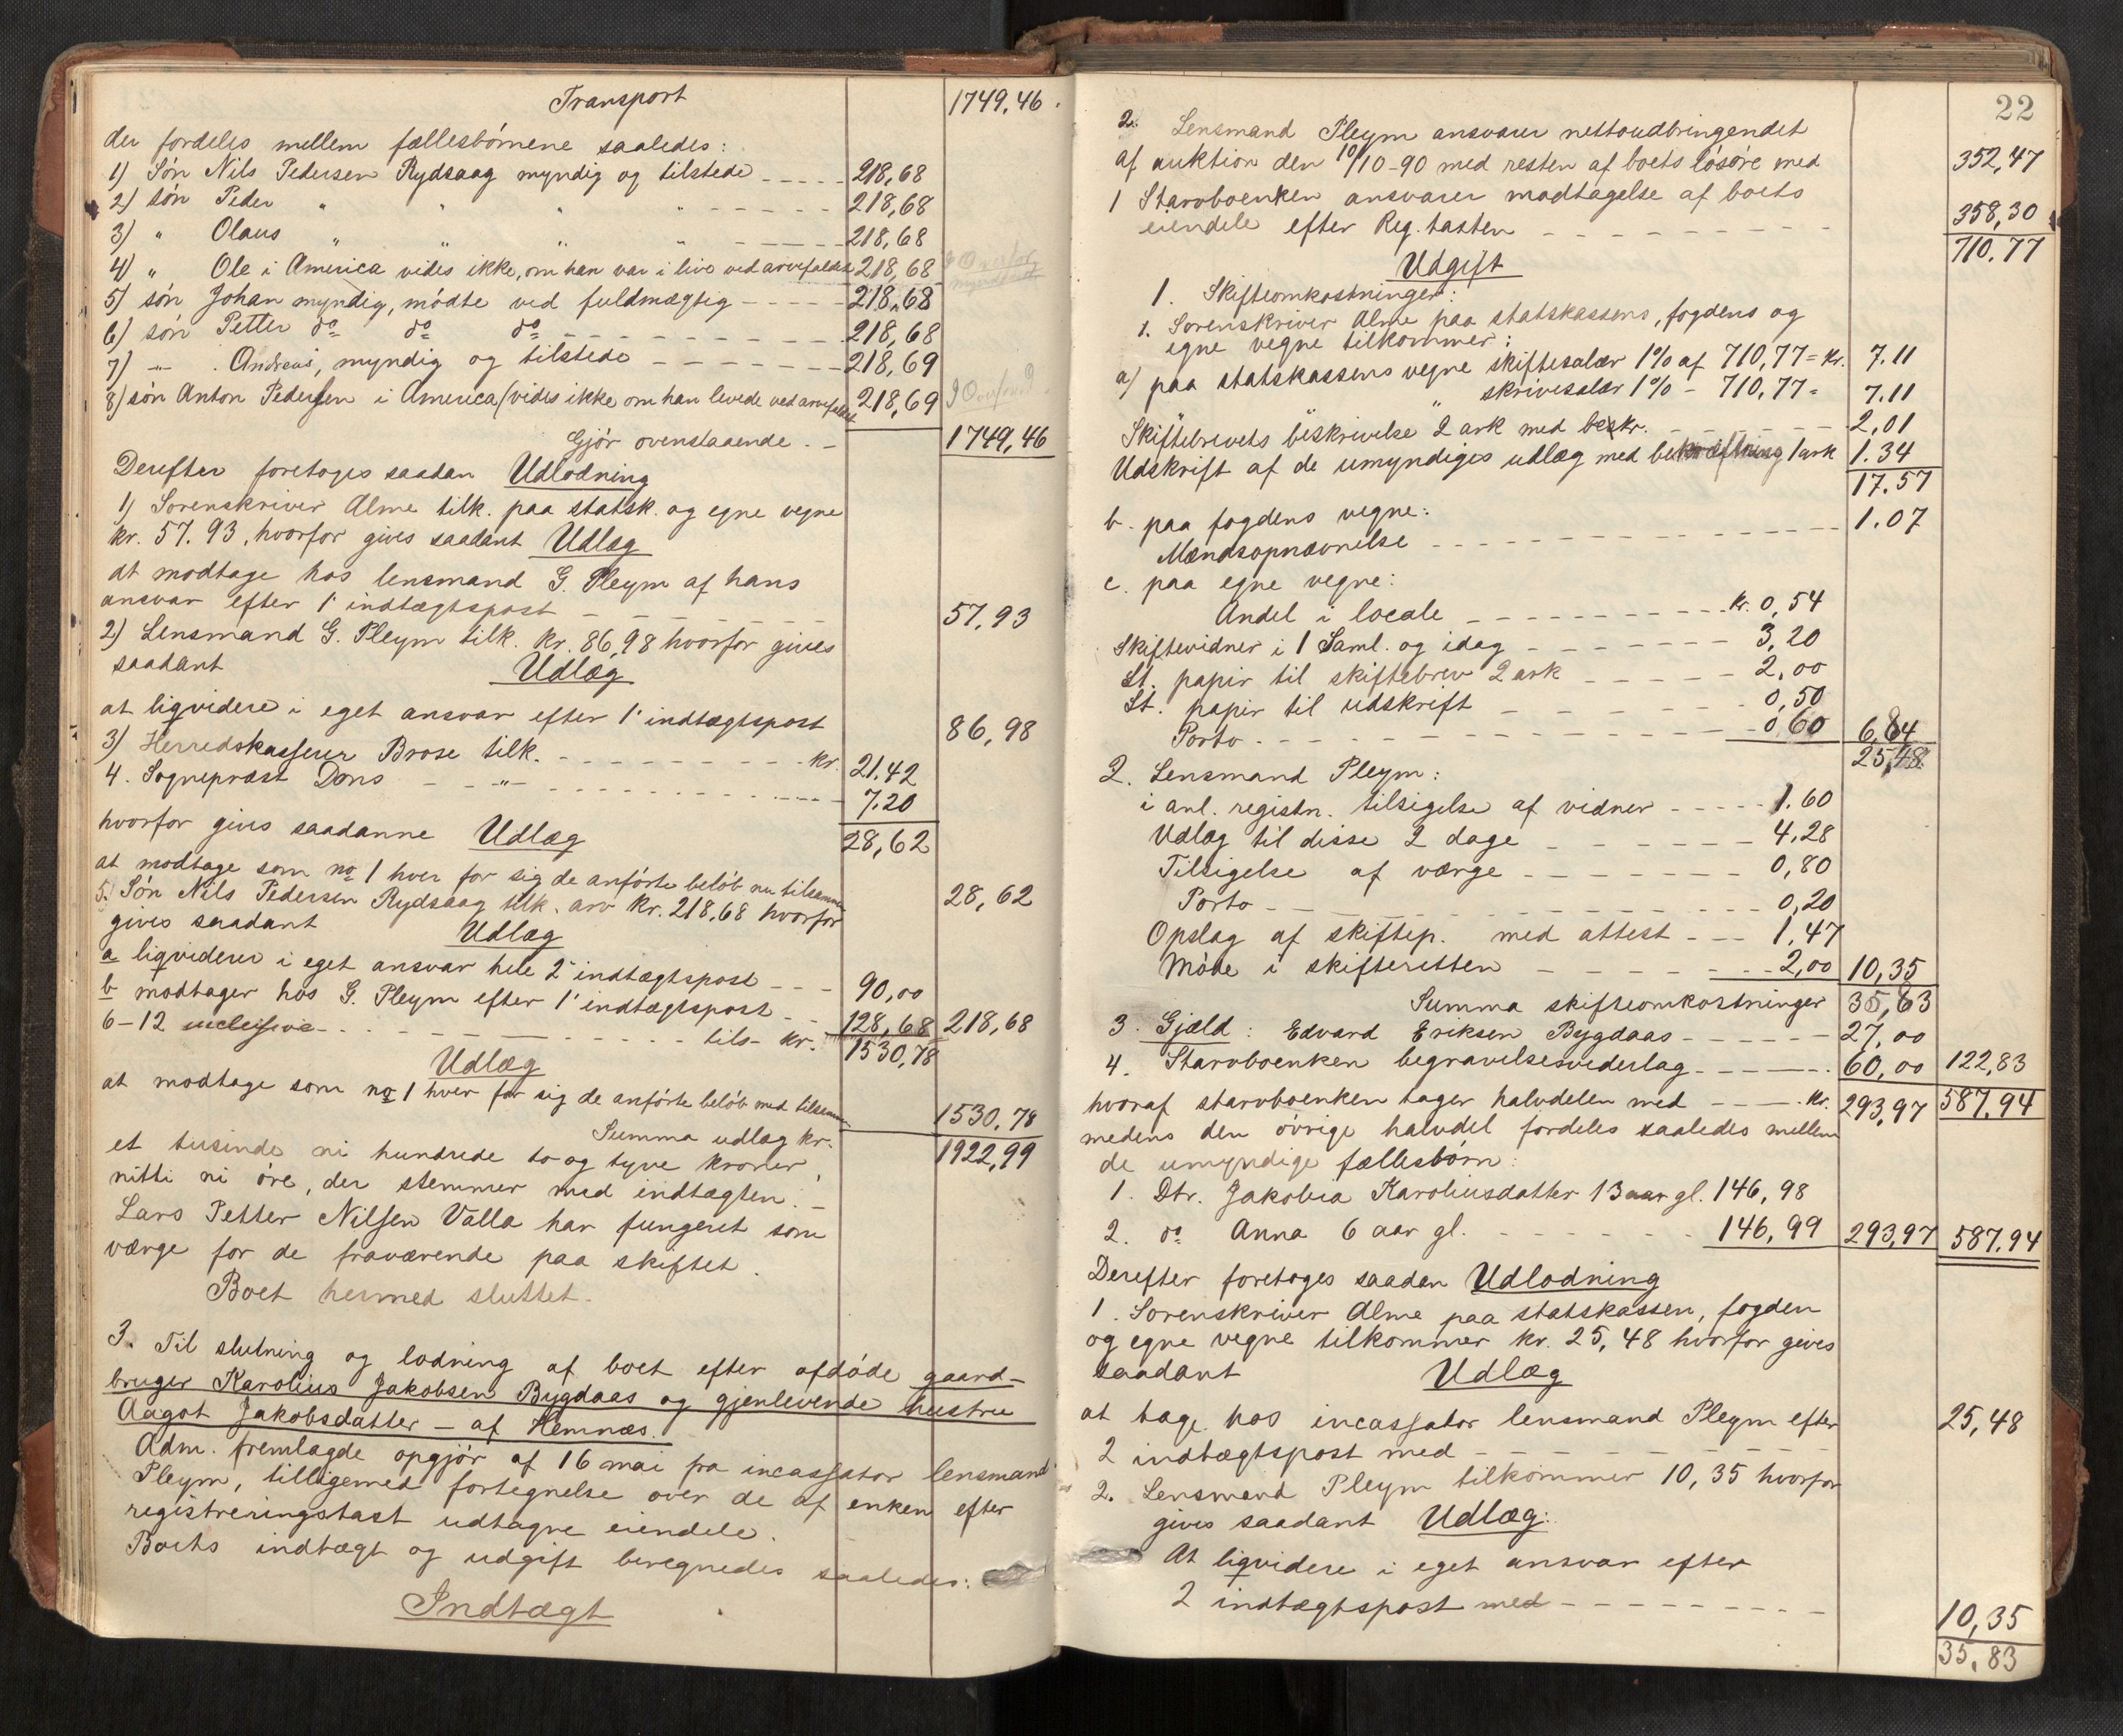 Transport 1749,46.
der fordeles mellem fællesbørnene saaledes:
1) Søn Nils Pedersen Rydsaag myndig og tilstede - - - - - 218,68
2) søn Peder " " " " - - - - - 218,68
3) " Olaus " " " " - - - - - 218,68
4) " Ole i America vides ikke, om han var i live ved arvefaldet 218,68
5) søn Johan myndig, mødte ved fuldmægtig - - - - - 218,68
6) søn Petter do do do - - - - - - - - 218,68
7) -"- Andreas, myndig og tilstede - - - - - - - 218,69
8) søn Anton Pedersen i America (vides ikke om han levede ved arvefaldet 218,69
Gjør ovenstaaende . - 1749,46
Derefter foretoges saadan Udlodning
1) Sorenskriver Alme tilk. paa statsk. og egne vegne
kr. 57.93, hvorfor gives saadant Udlæg
at modtage hos lensmand G. Pleym af hans
ansvar efter 1' indtægtspost - - - - - - - 57,93
2) Lensmand G. Pleym tilk. kr. 86,98 hvorfor gives
saadant Udlæg
at liqvidere i eget ansvar efter 1' indtægtspost 86,98
3) Herredskasserer Brose tilk. - - - - - - - - - kr. 21.42
4. Sogneprest Dons - - -"- - - - - - - - - - - - 7.20
hvorfor gives saadanne Udlæg 28,62
at modtage som no 1 hver for sig de anførte beløb nu tilsammen 28,62
5. Søn Nils Pedersen Rydsaag tilk. arv kr. 218,68 hvorfor
gives saadant Udlæg
a liqviderer i eget ansvar hele 2' indtægtspost - - - 90,00
b modtager hos G. Pleym efter 1' indtægtspost - - 128,68 218,68
6-12 inclusive - - - - - - - - - - - tils- kr. 1530,78
Udlæg
at modtage som no 1 hver for sig de anførte beløb med tilsammen 1530,78
Summa udlæg kr. 1922,99
et tusinde ni hundrede to og tyve kroner,
nitti ni øre, der stemmer med indtægten. -
Lars Petter Nilsen Valla har fungeret som
værge for de fraværende paa skiftet.
Boet hermed sluttet.
3. Til slutning og lodning af boet efter afdøde gaard-
bruger Karolius Jakobsen Bygdaas og gjenlevende hustru
Aagot Jakobsdatter - af Hemnæs.
Adm. fremlagde opgjør af 16 mai fra incassator lensmand
Pleym, tilligemed fortegnelse over de af enken efter
registreringstaxt udtagne eiendele.
Boets indtægt og udgift beregnedes saaledes:
Indtægt
22
2. Lensmand Pleym ansvarer nettoudbringendet
af auktion den 10/10-90 med resten af boets løsøre med 352,47
1 Stervboenken ansvarer modtagelse af boets
eiendele efter Reg. taxten - - - - - - - - - 358,30
710,77
Udgift
1. Skifteomkostninger:
1. Sorenskriver Alme paa statskassens, fogdens og
egne vegne tilkommer:
a) paa statskassens vegne skiftesalær 1% af 710,77 = kr. 7.11
" " " skrivesalær 1% - 710,77 = 7.11
Skiftebrevets beskrivelse 2 ark med bekr. - - - - - 2,01
Udskrift af de umyndiges udlæg med bekræftning 1 ark 1.34
17.57
b. paa fogdens vegne:
Mændsopnævnelse - - - - - - - - - - - - - 1.07
c. paa egne vegne:
Andel i locale - - - - - - - - - kr. 0,54
Skiftevidner i 1 Saml. og idag - - - - - - - 3,20
St. papir til skiftebrev 2 ark - - - - - 2,00
St. papir til udskrift - - - - - - - 0,50
Porto - - - - - - - - - - - - - - - 0,60 6,84
25,48
2. Lensmand Pleym:
i anl. registr. tilsigelse af vidner - - - - - 1.60
Udlæg til disse 2 dage - - - - - - - 4,28
Tilsigelse af værge - - - - - - - - 0,80
Porto - - - - - - - - - - - - - - 0,20
Opslag af skiftep. med attest - - - 1,47
Møde i skifteretten - - - - - - - - 2,00 10,35
Summa skifteomkostninger 35,83
3. Gjæld: Edvard Eriksen Bygdaas - - - - - - 27,00
4. Stervboenken begravelsesvederlag - - - - - 60,00 122,83
hvoraf stervboenken tager halvdelen med - - - kr. 293,97 587,94
medens den øvrige halvdel fordeles saaledes mellem
de umyndige fællesbørn:
1. Dtr. Jakobia Karoliusdatter 13 aar gl. 146,98
2. do Anna 6 aar gl. - - - - - - - 146,99 293,97 587,94
Derefter foretoges saadan Udlodning
1. Sorenskriver Alme paa statskassen, fogden
og egne vegne tilkommer kr. 25,48 hvorfor gives
saadant Udlæg
at tage hos incassator lensmand Pleym efter 25,48
2 indtægtspost med - - - - - - - - - -
2. Lensmand Pleym tilkommer 10,35 hvorfor
gives saadant Udlæg:
At liqvidere i eget ansvar efter
2 indtægtspost med - - - - - - - - - 10,35
35,83